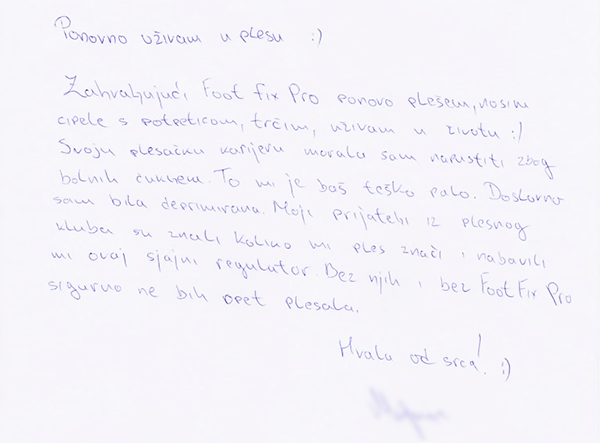 Ponovno uživam u plesu :)
Zahvaljujući Foot Fix Pro ponovo plešem, nosim
cipele s potpeticom, trčim, uživam u životu :)
Svoju plesačku karijeru morala sam napustiti zbog
bolnih čukljeva. To mi je baš teško palo. Doslovno
sam bila deprimirana. Moji prijatelji iz plesnog
kluba su znali koliko mi ples znači i nabavili
mi ovaj sjajni regulator. Bez njih i bez Foot Fix Pro
sigurno ne bih opet plesala.
Hvala od srca! :)